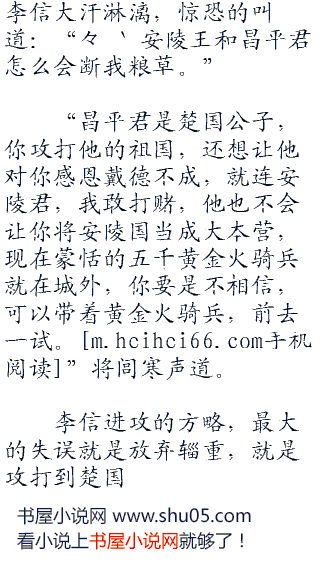 李信大汗淋漓，惊恐的叫
道：“々 丶 安陵王和昌平君
怎么会断我粮草。”
“昌平君是楚国公子，
你攻打他的祖国，还想让他
对你感恩戴德不成，就连安
陵君，我敢打赌，他也不会
让你将安陵国当成大本营，
现在蒙恬的五千黄金火骑兵
就在城外，你要是不相信，
可以带着黄金火骑兵，前去
一试。[m.hcihci66.com手机
阅读]”将闾寒声道。
李信进攻的方略，最大
的失误就是放弃辎重，就是
攻打到楚国
书屋小说网 www.shu05.com
看小说上书屋小说网就够了！